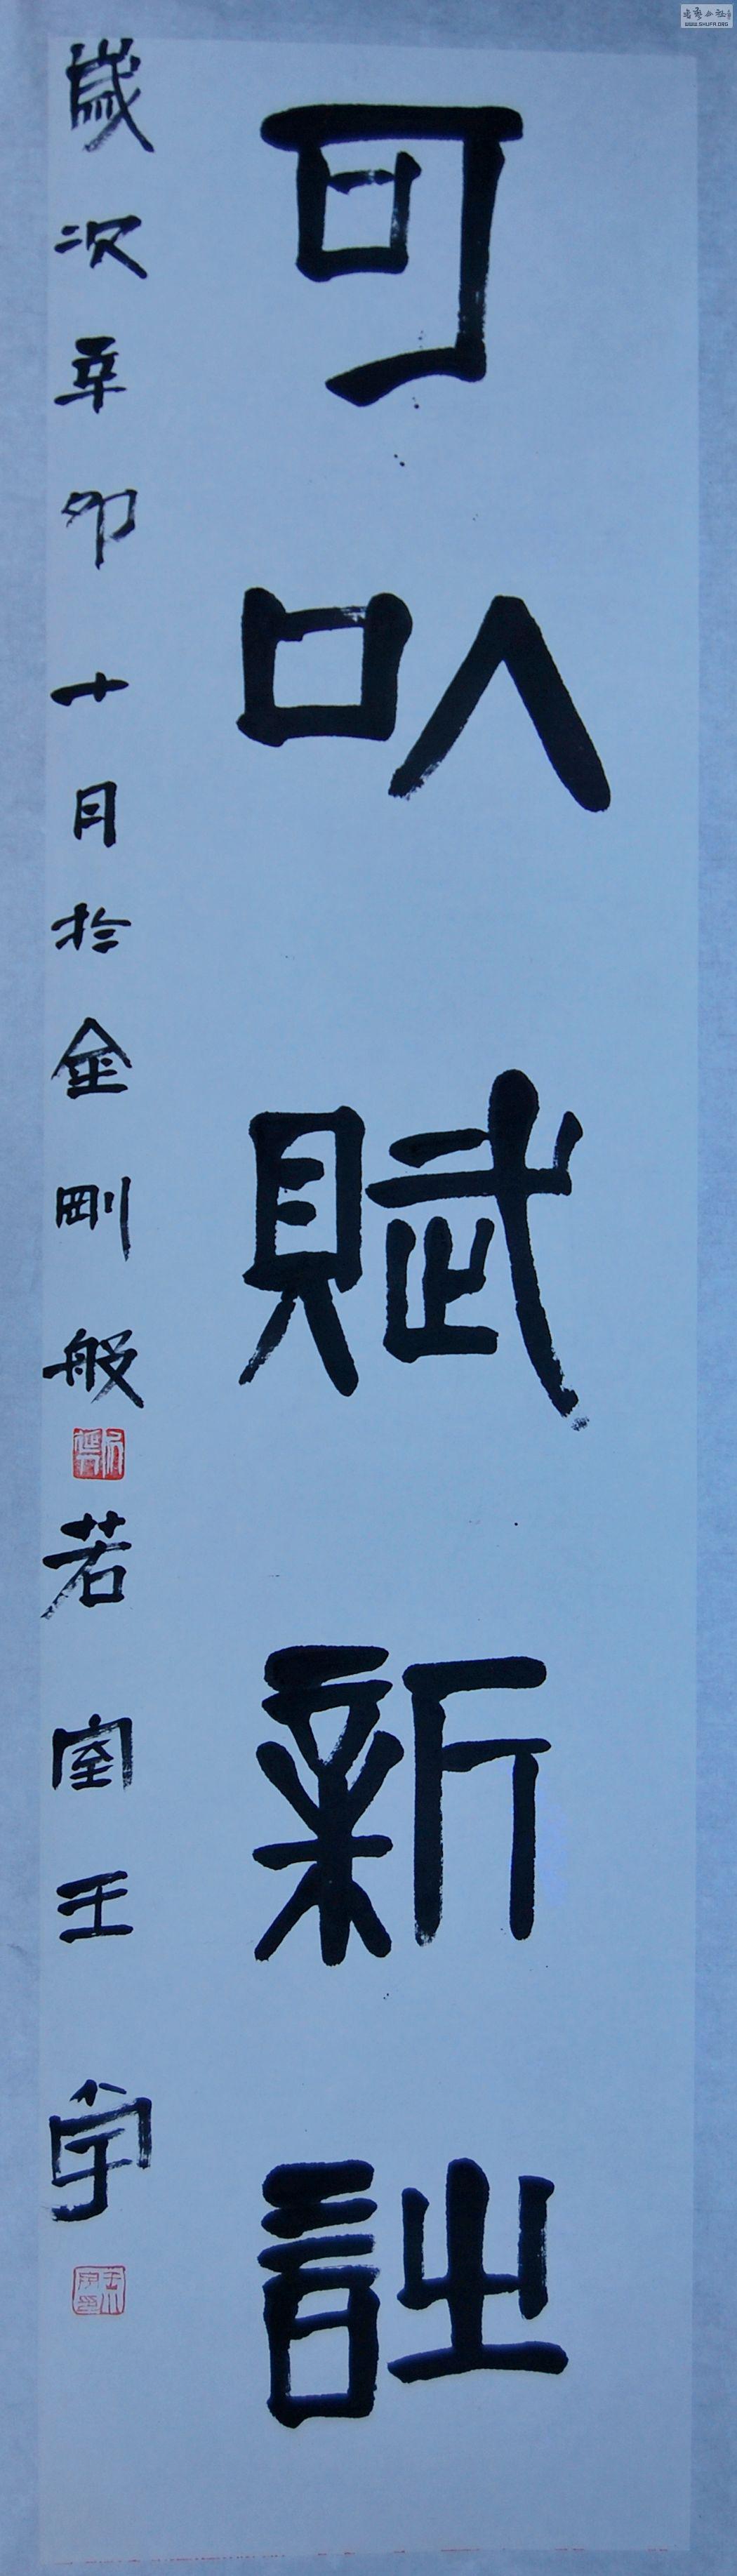 可㕥賦新詩
歲次辛卯十月於金剛般若室王宇
WWW.SHUFA.ORG